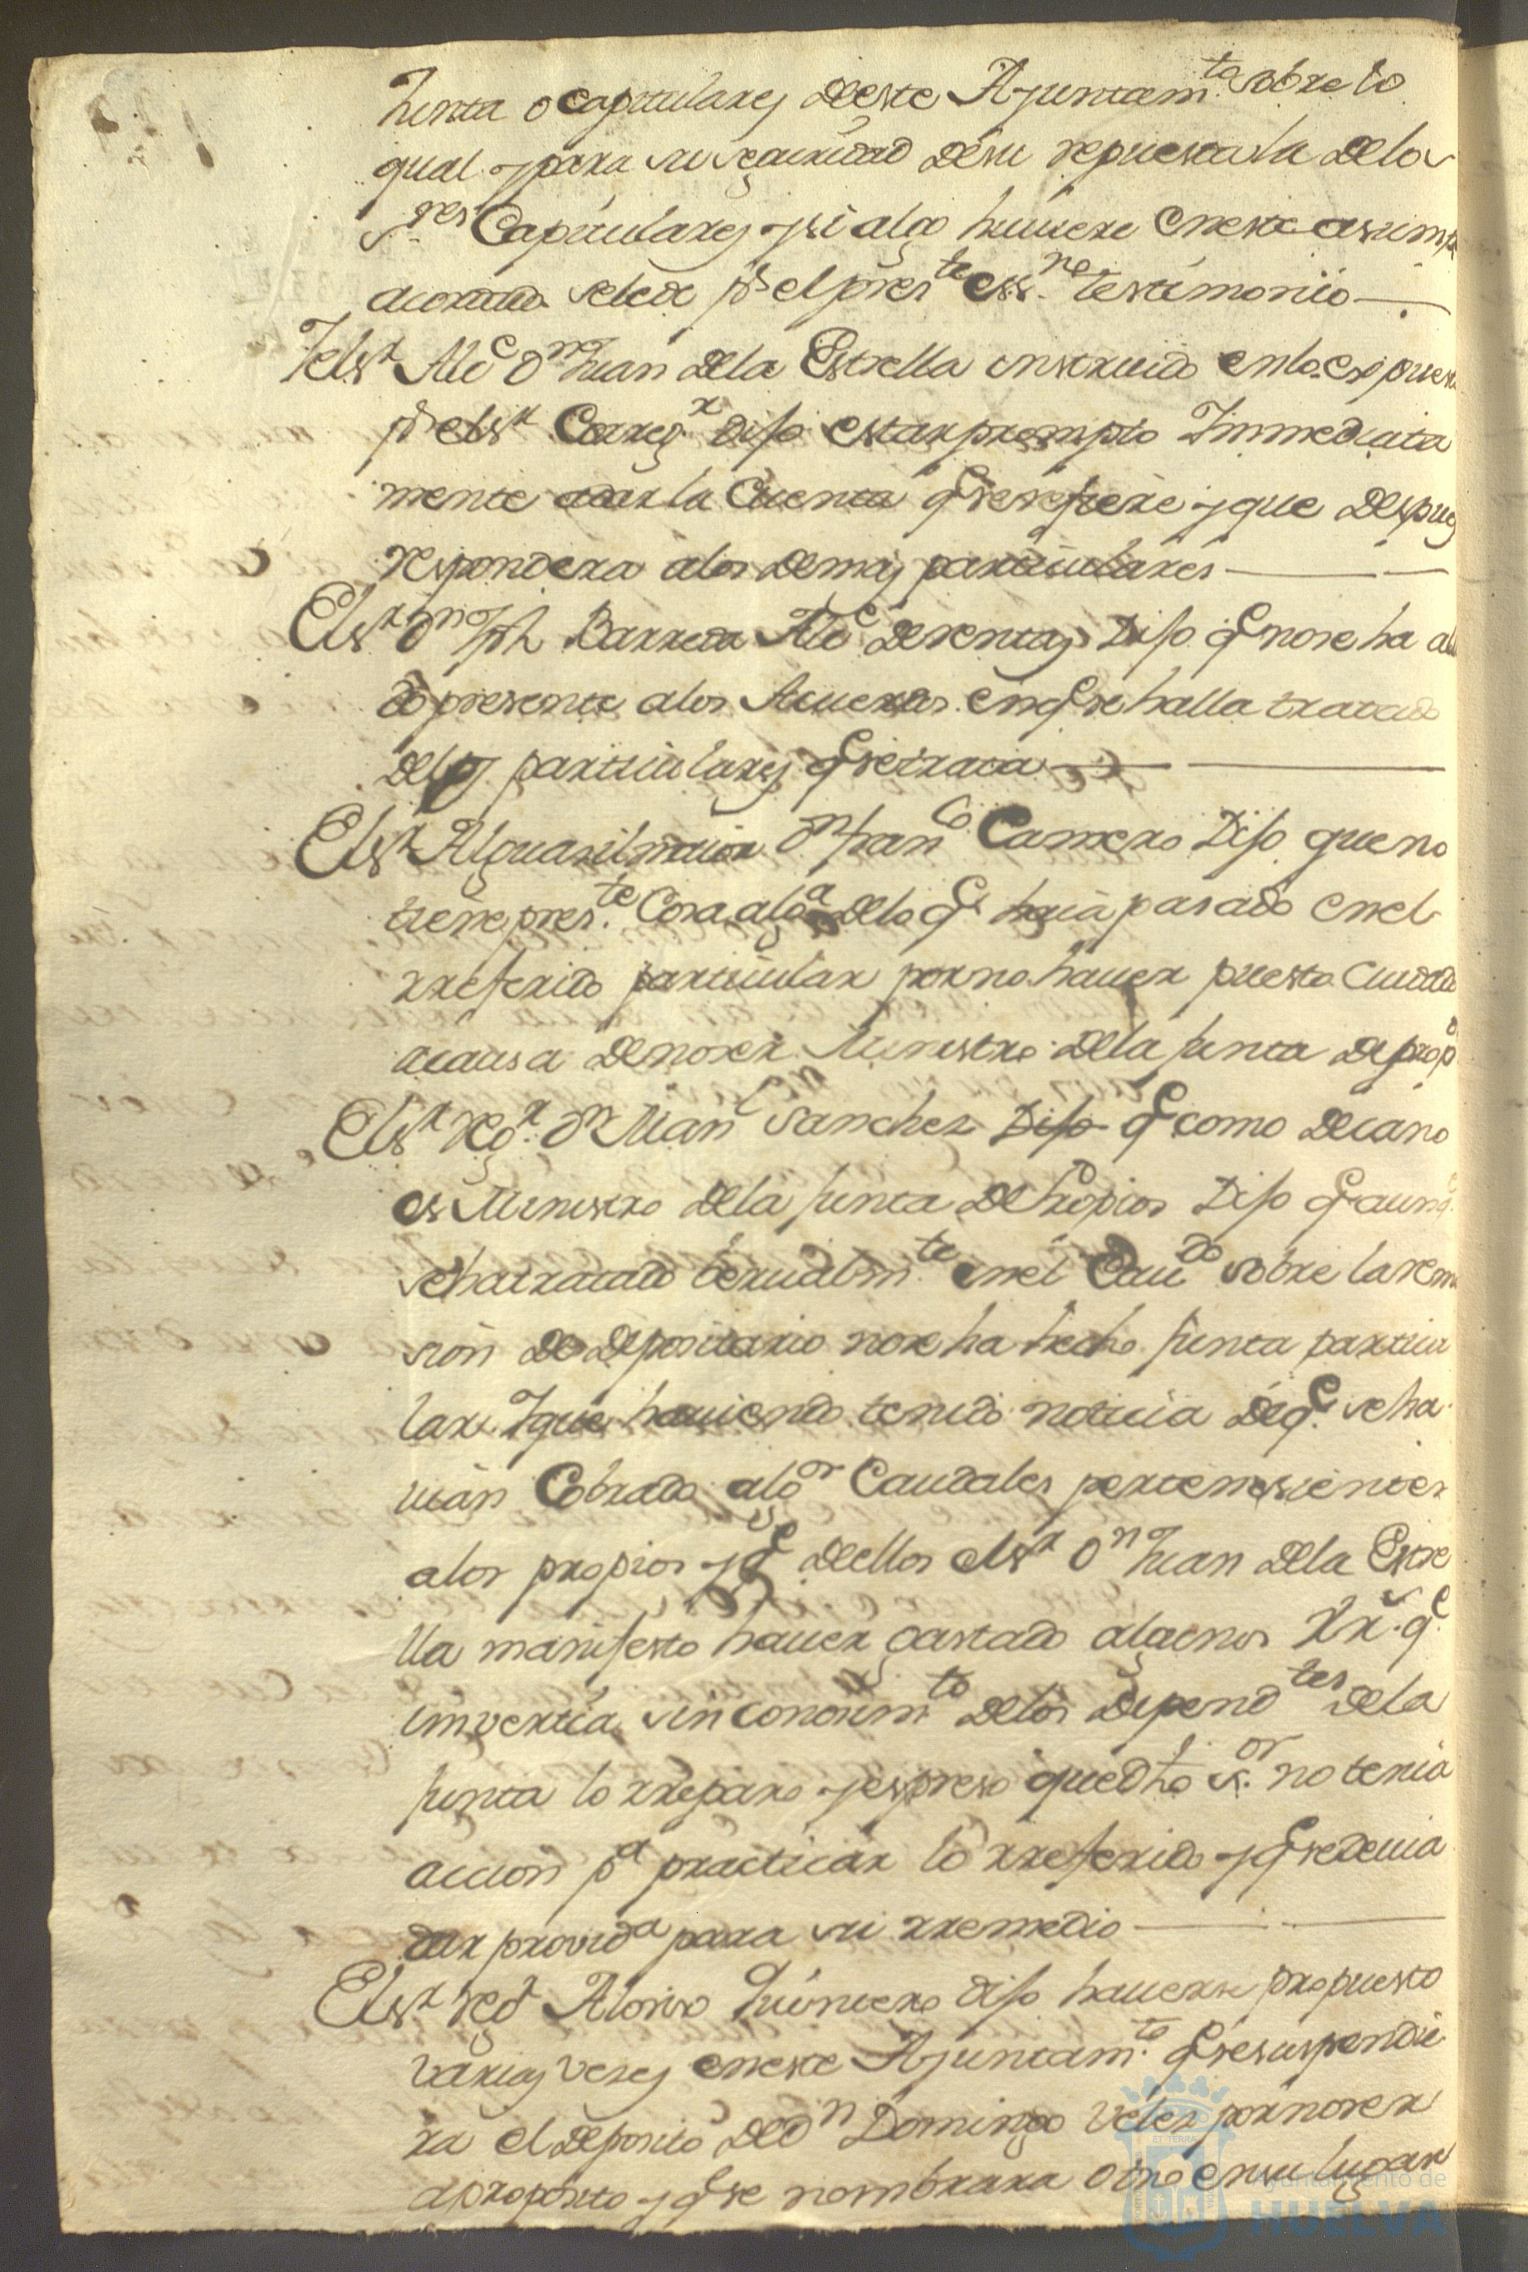 Junta o capitulares deeste Ajuntam.to sobre lo
qual y para su seguridad de su repuesta la delos
s.res Capitulares y si algo huviere en este asump
acordado sele de p.r el pres.te ess.no testimonio
Yels.r Alc.e D.n Juan dela Estrella instruido enlo expues
p.r els.r Correg.r Dijo estar prompto Immediata
mente adar la Cuenta q.e se refiere y que despues
respondera alos demas particulares
Els.r D.n Jph Barreda Alc.e de rentas Dijo q.e no se ha alla
do presente alos Acuerdos en q.e se halla tratado
delos particulares q.e se trata
Els.r Alguasil maior D.n Fran.co Camero Dijo que no
tiene pres.te Cosa alg.a delo q.e haia pasado en el
rreferido particular por no haver puesto Cuidado
acausa de no ser Ministro dela Junta de prop.os
Els.r reg.r D.n Man.l Sanchez Dijo q.e como decano
es Ministro dela Junta de Propios Dijo q.e aunq.e
se ha tratado berualm.te en el Cau.do sobre la remo
sion de depositario no se ha hecho Junta particu
lar. Y que haviendo tenido noticia de q.e se ha
vian Cobrado alg.os Caudales pertenesientes
alos propios y q.e deellos els.r D.n Juan dela Estre
lla manifesto haver gastado algunos Rr.s q.e
imvertia sin conosim.to delos depend.tes dela
Junta lo rreparo y espreso que dho s.or no tenia
accion p.a practicar lo rreferido y q.e se devia
dar provid.a para su rremedio
Els.r reg.r Alonso Quintero dijo haverse propuesto
varias veses en este Ajuntam.to q.e se suspendie
ra el deposito de D.n Domingo Veles por no ser
aproposito y q.e se nombrara otro en su lugar
ET TERRA
Ayuntamiento de
HUELVA